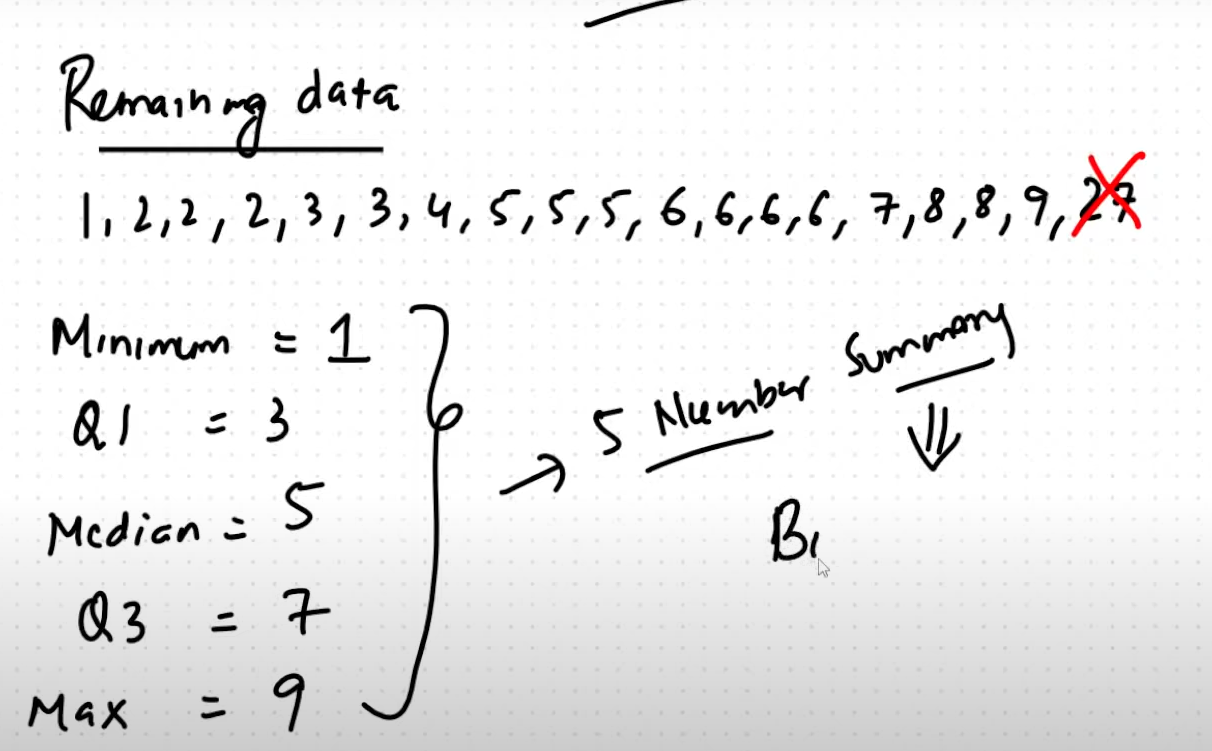 Remaining data
1, 2, 2, 2, 3, 3, 4, 5, 5, 5, 6, 6, 6, 6, 7, 8, 8, 9, 27
Minimum = 1
Q1 = 3
Median = 5
Q3 = 7
Max = 9
→ 5 Number Summary
⇓
B